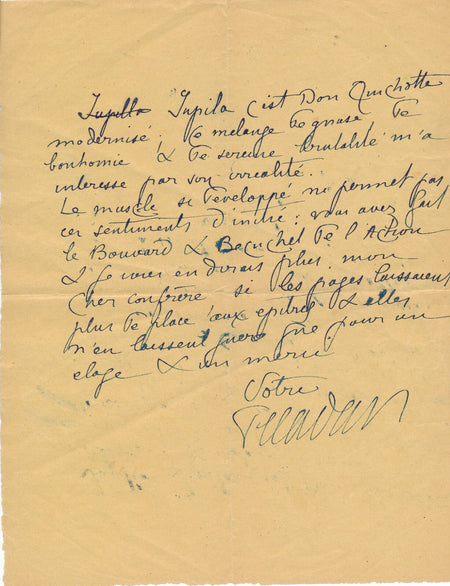 Jupilla Jupila c'est Don Quichotte
modernisé. Ce melange de gnase, de
bonhomie & de sereine brutalité m'a
interesse par son irréalité.
Le muscle si développé ne permet pas
ces sentiments d'intrie: vous avez fait
le Bouvard & Becuchet de l'Action
& je vous en dirais plus, mon
cher confrère si les pages laissaient
plus de place aux epitres & elles
n'en laissent guere que pour un
eloge & un merci.
Votre
Peladan